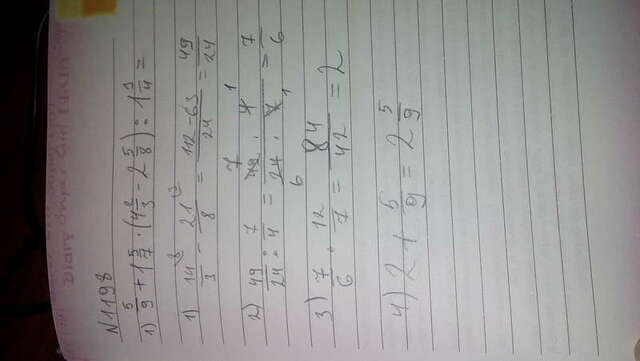 N1198
1) 5/9 + 1 5/7 · (4 2/3 - 2 5/8) : 1 3/4 =
1) 14/3 - 21/8 = 112-63/24 = 49/24
2) 49/24 : 7/4 = 49/24 · 4/7 = 7/6
3) 7/6 · 12/7 = 84/42 = 2
4) 2 + 5/9 = 2 5/9